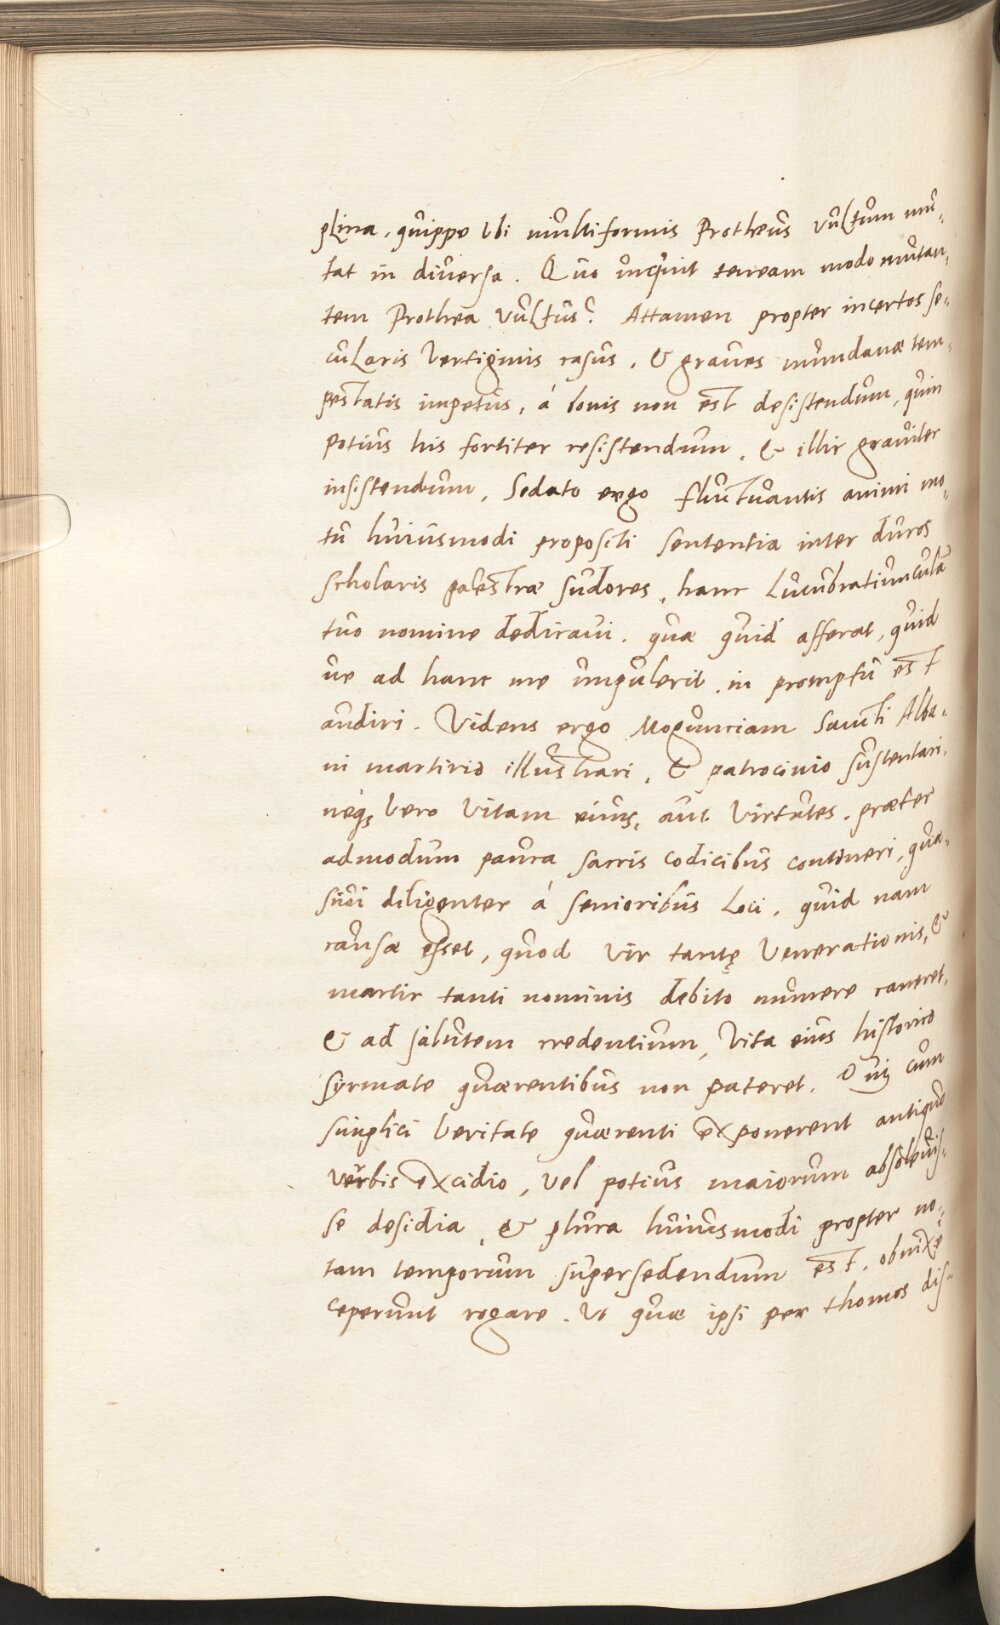 plina, quippe Ubi multiformis Protheus vultum mu-
tat in diversa. Quo inquit teneam modo mutan-
tem Prothea vultus? Attamen propter incertos se-
cularis Vertiginis casus, & graves mundanæ tem-
pestatis impetus, á bonis non est desistendum, quin
potius his fortiter resistendum, & illic graviter
insistendum, Sedato ergo fluctuantis animi mo-
tu huiusmodi propositi sententia inter duros
scholaris palestræ sudores, hanc Lucubratiunculã
tuo nomine dedicavi. quæ quid afferat, quid
ve ad hanc me impulerit, in promptu est
audiri. Videns ergo Mogunciam Sancti Alba-
ni martirio illustrari, & patrocinio sustentari,
neq; vero Vitam eius, aut Virtutes, præter
admodum pauca sacris codicibus contineri, quæ-
sivi diligenter á senioribus Loci, quid nam
causæ esset, quod Vir tantę Venerationis, &
martir tanti nominis debito munere careret,
& ad salutem credentium, Vita eius historico
syrmate quærentibus non pateret. Qui cum
simplici Veritate quærenti exponerent antiquo
verbis excidio, vel potius maiorum absolevis-
se desidia, & plura huiusmodi propter no-
tam temporum supersedendum est, obnixè
ceperunt rogare. Ut quæ ipsi per thomos dis-